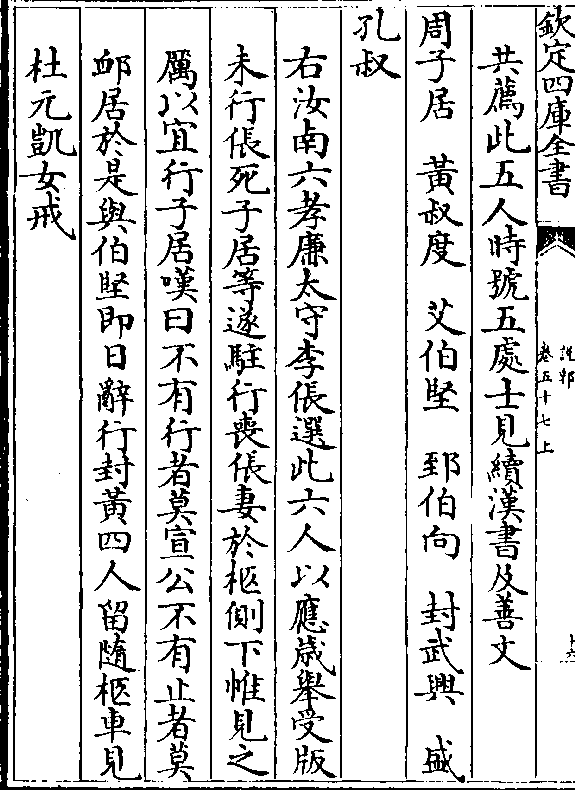 欽定四庫全書
說郛
卷五十七上
共薦此五人時號五處士見續漢書及善文
周子居　黃叔度　艾伯堅　郅伯向　封武興　盛
孔叔
右汝南六孝廉太守李倀選此六人以應歲舉受版
未行倀死子居等遂駐行喪倀妻於柩側下帷見之
厲以宜行子居嘆曰不有行者莫宣公不有止者莫
䘏居於是與伯堅即日辭行封黃四人留隨柩車見
杜元凱女戒